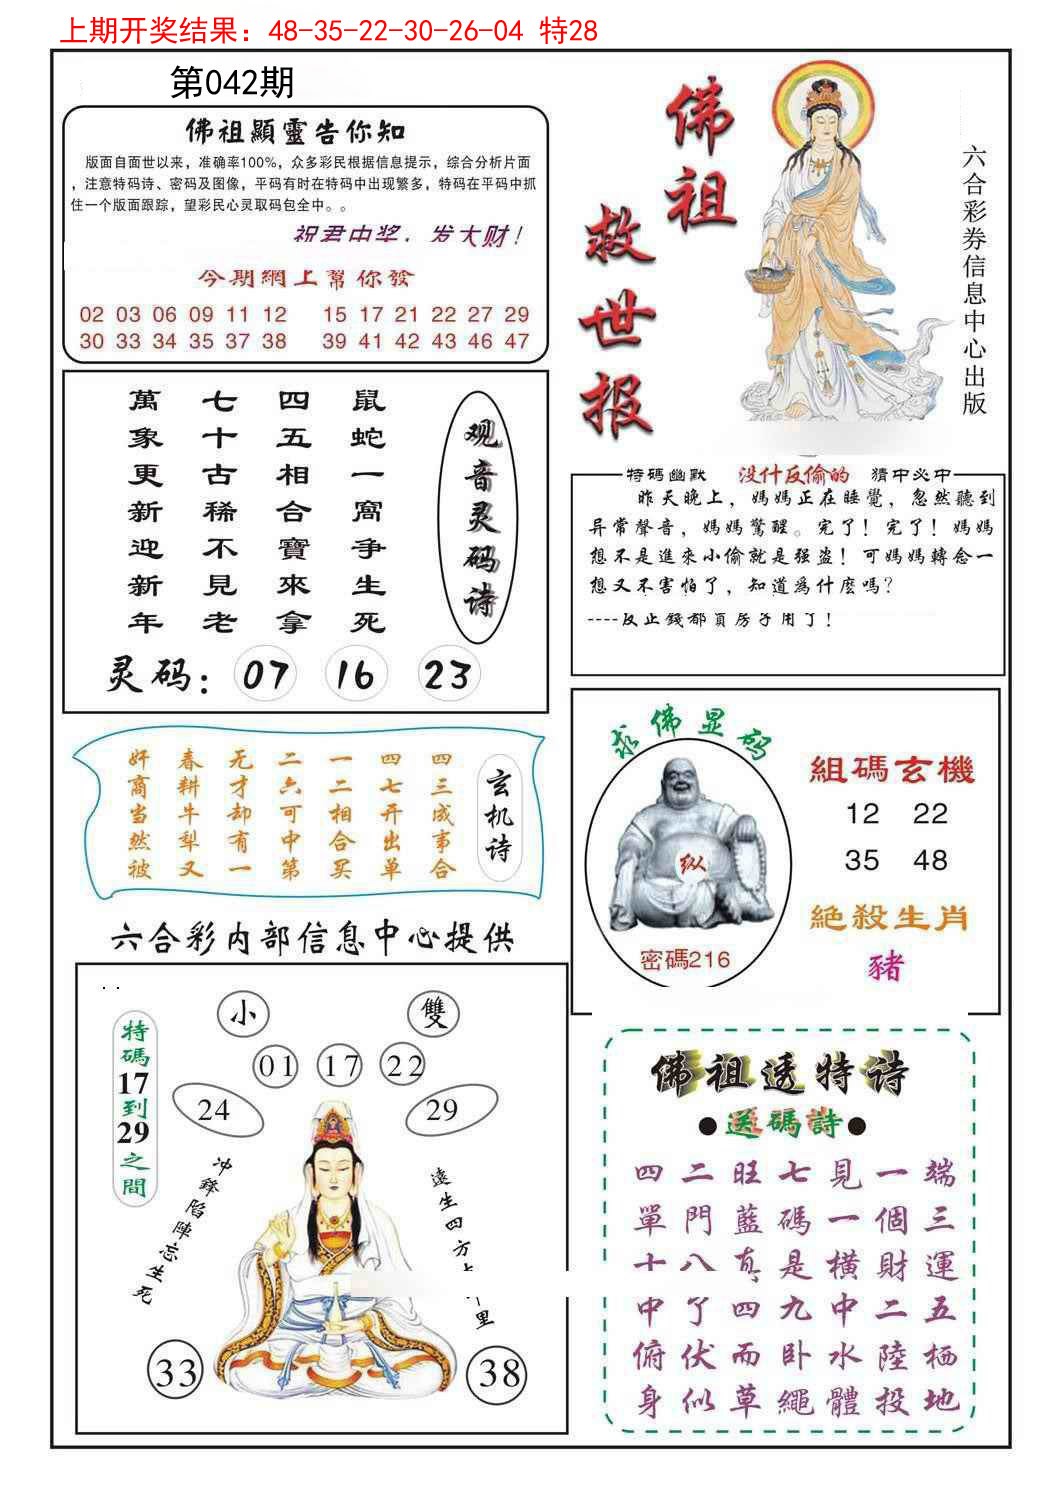 上期开奖结果：48-35-22-30-26-04 特28
第042期
佛祖顯靈告你知
版面自面世以来，准确率100%，众多彩民根据信息提示，综合分析片面
，注意特码诗、密码及图像，平码有时在特码中出现繁多，特码在平码中抓
住一个版面跟踪，望彩民心灵取码包全中。。
祝君中奖，发大财！
今期網上幫你發
02 03 06 09 11 12 15 17 21 22 27 29
30 33 34 35 37 38 39 41 42 43 46 47
佛祖
救世报
六合彩券信息中心出版
鼠蛇一窩争生死
四五相合寶來拿
七十古稀不見老
萬象更新迎新年
观音灵码诗
灵码：07 16 23
特碼幽默 没什反偷的 猜中必中
昨天晚上，媽媽正在睡覺，忽然聽到
异常聲音，媽媽驚醒。完了！完了！媽媽
想不是進來小偷就是强盗！可媽媽轉念一
想又不害怕了，知道爲什麽嗎？
----反正錢都買房子用了！
玄机诗
四三成事合
四七开出单
一二相合买
二六可中第
无才却有一
春耕牛犁又
奸商当然被
求佛显码
纵
密碼216
組碼玄機
12 22
35 48
絕殺生肖
豬
六合彩内部信息中心提供
特碼17到29之間
小 雙
01 17 22
24 29
冲鋒陷陣忘生死
遠生四方
里
33 38
佛祖透特诗
●送碼詩●
端三運五栖地
一個財二陸投
見一横中水體
七碼是九卧繩
旺藍真四而草
二門八了伏似
四單十中俯身